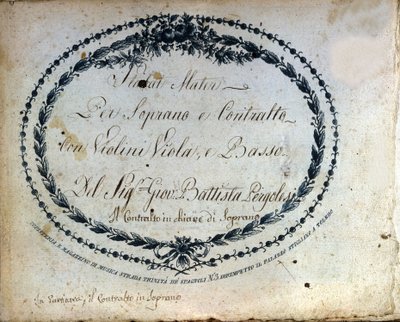 Stabat Mater
Per Soprano e Contralto
con Violini Viola, e Basso.
Del Sigr. Giov. Battista Pergolesi
Il Contralto in chiave di Soprano
E MAGAZZINO DI MUSICA STRADA TRINITÀ DE SPAGNOLI N.º 3. DIRIMPETTO IL PALAZZO STIGLIANO A TOLEDO
il Contralto in Soprano